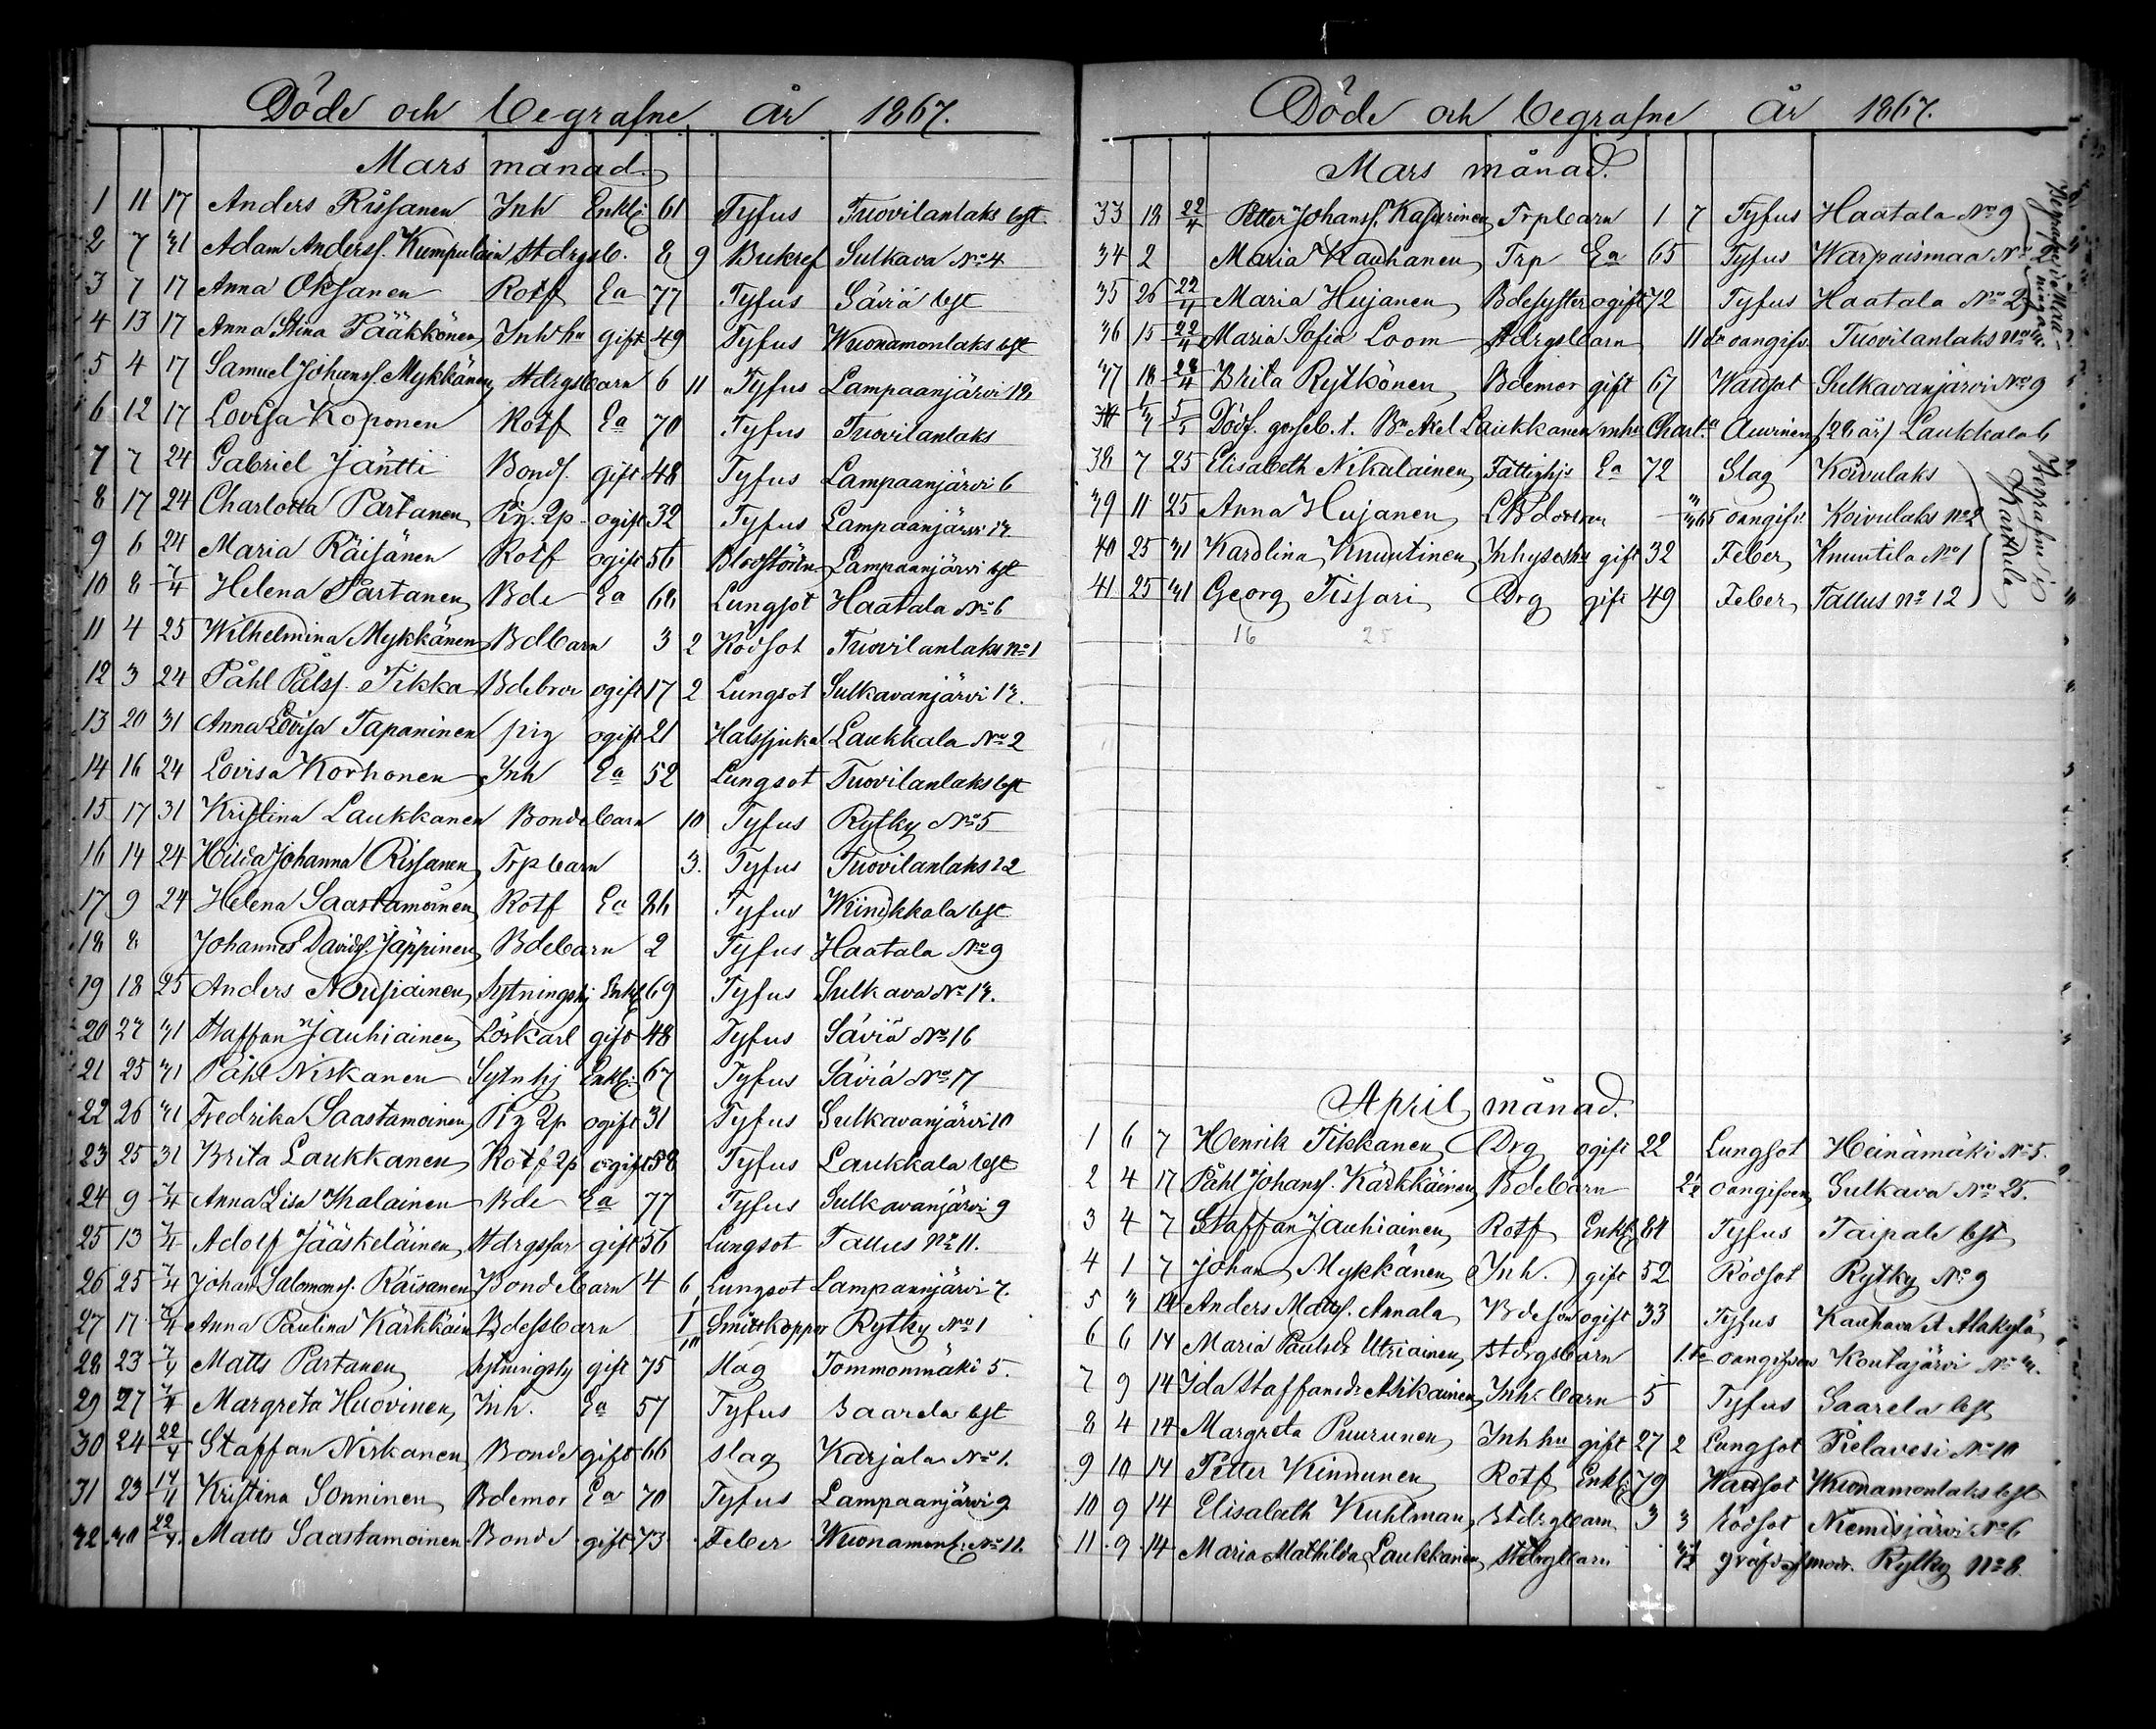 Döde och begrafne år 1867.
Mars månad.
1 11 17 Anders Rissanen Inh Enkl: 61 Tyfus Tuovilanlaks bst
2 7 31 Adam Anderss. Kumpulain Stdrgsb. 8 9 Bukref Sulkava No 4
3 7 17 Anna Oksanen Rotf Ea 77 Tyfus Säviä bst
4 13 17 Anna Stina Pääkkönen Inhshu gift 49 Tyfus Wuonamonlaks bst
5 4 17 Samuel Johanss. Mykkänen Stdrgsbarn 6 11 Tyfus Lampaanjärvi 18
6 12 17 Lovisa Koponen Rotf Ea 70 Tyfus Tuovilanlaks
7 7 24 Gabriel Jäntti Bonds. gift 48 Tyfus Lampaanjärvi 6
8 17 24 Charlotta Partanen Pig. Qp. ogift 32 Tyfus Lampaanjärvi 13.
9 6 24 Maria Räisänen Rotf ogift 56 Lampaanjärvi bst
10 8 7/4 Helena Partanen Bde Ea 68 Lungsot Haatala No 6
11 4 25 Wilhelmina Mykkänen Bdbarn 3 2 Rödsot Tuovilanlaks No 1
12 3 24 Påhl Pålss. Tikka Bdebror ogift 17 2 Lungsot Sulkavanjärvi 13.
13 20 31 Anna Lovisa Tapaninen pig ogift 21 Halssjuka Laukkala No 2
14 16 24 Lovisa Korhonen Inh Ea 52 Lungsot Tuovilanlaks bst
15 17 31 Kristina Laukkanen Bondebarn 10 Tyfus Rytky No 5
16 14 24 Hilda Johanna Rissanen Trpbarn 3. Tyfus Tuovilanlaks 22
17 9 24 Helena Saastamoinen Rotf Ea 86 Tyfus Winikkala bst
18 8 Johannes Davids. Jäppinen Bdebarn 2 Tyfus Haatala No 9
19 18 25 Anders Nousiainen Sytningshj Enkl 69 Tyfus Sulkava No 13.
20 23 31 Staffan Jauhiainen Löskarl gift 48 Tyfus Säviä No 16
21 25 31 Påhl Niskanen Sytnhj Enkl: 67 Tyfus Säviä No 17
22 26 31 Fredrika Saastamoinen Pig Qp ogift 31 Tyfus Sulkavanjärvi 10
23 25 31 Brita Laukkanen Rotf Qp ogift 58 Tyfus Laukkala bst
24 9 7/4 Anna Lisa Kalainen Bde Ea 77 Tyfus Sulkavanjärvi 9
25 13 7/4 Adolf Jääskeläinen Stdrgsfar gift 56 Lungsot Tallus No 11.
26 25 7/4 Johan Salomonss. Räisänen Bondebarn 4 6 Lungsot Lampaanjärvi 7.
27 17 7/4 Anna Paulina Kärkkäin Bdessbarn Smittkoppor Rytky No 1
28 23 7/4 Matts Partanen Sytningshj gift 75 Slag Tommonmäki 5.
29 27 7/4 Margreta Huovinen Inh. Ea 57 Tyfus Saarela bst
30 24 22/4 Staffan Niskanen Bonde gift 66 slag Karjala No 1.
31 23 14/4 Kristina Sonninen Bdemor Ea 70 Tyfus Lampaanjärvi 9
32 30 22/4 Matts Saastamoinen Bonde gift 73 Feber Wuonamonl. No 11.
Döde och begrafne år 1867.
Mars månad.
33 18 22/4 Petter Johanss. Kasurinen Trpbarn 1 7 Tyfus Haatala No 9
34 2 Maria Kauhanen Trp Ea 65 Tyfus Warpaismaa No
35 26 22/4 Maria Hujanen Bdesyster ogift 72 Tyfus Haatala No 2
36 15 22/4 Maria Sofia Loom Stdrgsbarn 11 dr oangifv. Tuovilanlaks
37 18 28/4 Brita Rytkönen Bdemor gift 67 Wattsot Sulkavanjärvi No 9
Dödf. gosseb. t. Bn Axel Laukkanen mhu Charl.a Auvinen (28 år) Laukkala 6
38 7 25 Elisabeth Nikalainen Fattighj: Ea 72 Slag Koivulaks
39 11 25 Anna Hujanen oangifv. Koivulaks No 2
40 25 31 Karolina Knuutinen Inhyseshu gift 32 Feber Knuutila No 1
41 25 31 Georg Tissari Drg gift 49 Feber Tallus No 12
Begrafne i
Karttula
16 25
April månad.
1 6 7 Henrik Tikkanen Drg ogift 22 Lungsot Heinämäki No 5.
2 4 17 Påhl Johanss. Kärkkäinen Bdebarn oangifven Sulkava No 25.
3 4 7 Staffan Jauhiainen Rotf Enkl 84 Tyfus Taipale bst
4 1 7 Johan Mykkänen Inh. gift 52 Rödsot Rytky No 9
5 3 14 Anders Matts. Annala Bdeson ogift 33 Tyfus Kauhava Alakylä
6 6 14 Maria Paulsdr Utriainen Stdrgsbarn oangifven Koutajärvi No 3.
7 9 14 Ida Staffansdr Asikainen Inh. barn 5 Tyfus Saarela bst
8 4 14 Margreta Puurunen Inhhu gift 27 2 Lungsot Pielavesi No 10
9 10 14 Petter Kinnunen Rotf Enkl 79 Wattsot Wuonamonlaks bst
10 9 14 Elisabeth Kuhlman Stdrgbarn 3 3 Rödsot Niemisjärvi No 6
11 9 14 Maria Mathilda Laukkanen Stdrgbarn modr. Rytky No 8.